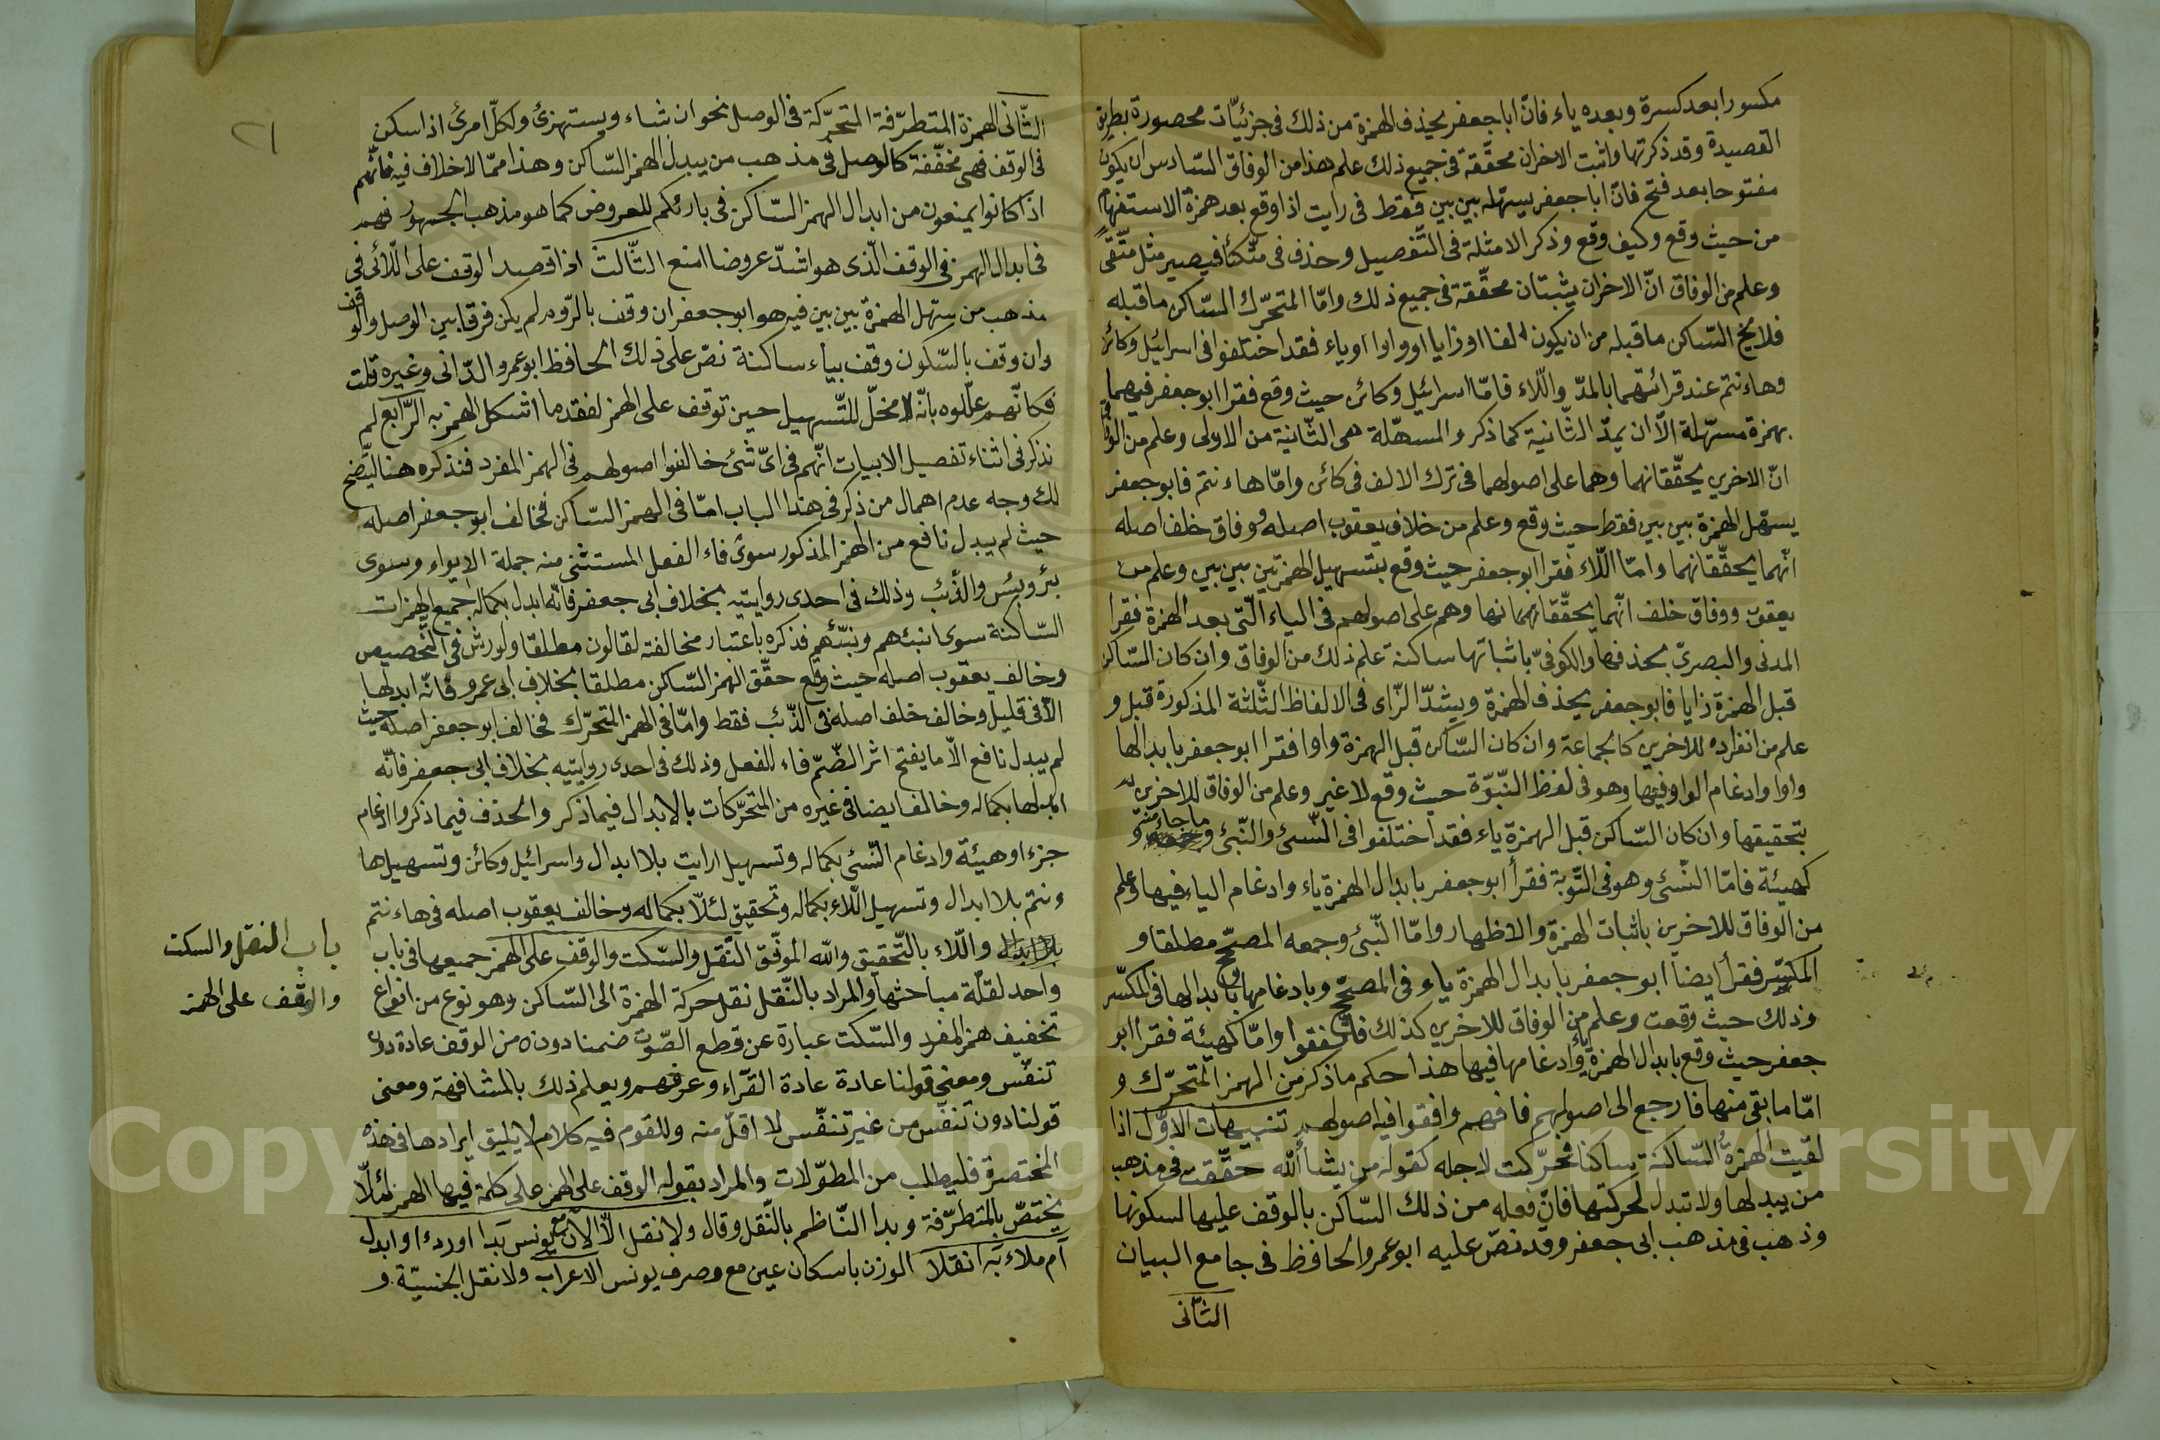 مكسورا بعد كسرة وبعده ياء فانّ ابا جعفر يحذف الهمزة من ذلك فى جزئيّات محصورة بطريق
القصيدة وقد ذكرتها واثبت الاخران محقّقة فى جميع ذلك علم هذا من الوفاق السّادس ان يكون
مفتوحا بعد فتح فانّ ابا جعفر يسهّله بين بين فقط فى رايت اذا وقع بعد همزة الاستفهام
من حيث وقع وكيف وقع وذكر الامثلة فى التّفصيل وحذف فى متّكئا فيصير مثل متّقى
وعلم من الوفاق انّ الاخران يثبتان محقّقة فى جميع ذلك وامّا المتحرّك السّاكن ما قبله
فلا يخ السّاكن ما قبله من ان يكون الفا او زايا او واوا او ياء فقد اختلفوا فى اسرائيل وكائن
وهاءنتم عند قرائتهما بالمدّ واللّاء فامّا اسرائيل وكائن حيث وقع فقرا ابو جعفر فيهما
بهمزة مسهّلة الّا ان يمدّ الثّانية كما ذكر والمسهّلة هى الثّانية من الاولى وعلم من الوفاق
انّ الاخرين يحقّقانهما وهما على اصولهما فى ترك الالف فى كائن وامّا هاءنتم فابو جعفر
يسهّل الهمزة بين بين فقط حيث وقع وعلم من خلاف يعقوب اصله ووفاق خلف اصله
انّهما يحقّقانهما وامّا اللّاء فقرا ابو جعفر حيث وقع بتسهيل الهمزتين بين بين وعلم من
يعقوب ووفاق خلف انّهما يحقّقانهما وهم على اصولهم فى الياء الّتى بعد الهمزة فقرا
المدنى والبصرىّ بحذفها والكوفىّ باثباتها ساكنة علم ذلك من الوفاق وان كان السّاكن
قبل الهمزة زايا فابو جعفر يحذف الهمزة ويشدّ الزّاى فى الالفاظ الثّلثة المذكورة قبل و
علم من انفراده للاخرين كالجماعة وان كان السّاكن قبل الهمزة واوا فقرا ابو جعفر بابدالها
واوا وادغام الواو فيها وهو فى لفظ النّبوّة حيث وقع لا غير وعلم من الوفاق للاخرين
بتحقيقها وان كان السّاكن قبل الهمزة ياء فقد اختلفوا فى النّسئ والنّبئ وما جاء منه و
كهيئة فامّا النّسئ وهو فى التّوبة فقرأ ابو جعفر بابدال الهمزة ياء وادغام الياء فيها وعلم
من الوفاق للاخرين باثبات الهمزة والاظهار وامّا النّبئ وجمعه المصحّح مطلقا و
المكسّر فقرأ ايضا ابو جعفر بابدال الهمزة ياء فى المصحّح وبادغامها وبابدالها فى المكسّر
وذلك حيث وقعت وعلم من الوفاق للاخرين كذلك فاتّفقوا وامّا كهيئة فقرا ابو
جعفر حيث وقع بابدال الهمزة ياء وادغامها فيها هذا حكم ما ذكر من الهمز المتحرّك و
امّا ما بقى منها فارجع الى اصولهم فافهم وافقوا فيه اصولهم تنبيهات الاوّل اذا
لقيت الهمزة السّاكنة ساكنا فحرّكت لاجله كقوله من يشأ الله حقّقت فى مذهب
من يبدلها ولا تبدل لحركتها فان فعله من ذلك السّاكن بالوقف عليها لسكونها
وذهب فى مذهب ابى جعفر وقد نصّ عليه ابو عمرو الحافظ فى جامع البيان
الثّانى
٢١
الثّانى الهمزة المتطرّفة المتحرّكة فى الوصل نحو ان شاء ويستهزئ ولكلّ امرئ اذا سكن
فى الوقف فهى مخفّفة كالوصل فى مذهب من يبدل الهمز السّاكن وهذا ممّا لا خلاف فيه فانّهم
اذا كانوا يمنعون من ابدال الهمز السّاكن فى بارئكم للعروض كما هو مذهب الجمهور فهم
فى ابدال الهمز فى الوقف الّذى هو اشدّ عروضا امنع الثّالث اذا قصد الوقف على اللّائى فى
مذهب من سهّل الهمزة بين بين فيه هو ابو جعفر ان وقف بالرّوم لم يكن فرقا بين الوصل والوقف
وان وقف بالسّكون وقف بياء ساكنة نصّ على ذلك الحافظ ابو عمرو الدّانى وغيره قلت
فكانّهم علّلوه بانّه لا مخلّ للتّسهيل حين توقف على الهمز لفقد ما اشكل الهمز به الرّابع لم
نذكر فى اثناء تفصيل الابيات انّهم فى اىّ شئ خالفوا اصولهم فى الهمز المفرد فنذكره هنا ليتّضح
لك وجه عدم اهمال من ذكر فى هذا الباب امّا فى الهمز السّاكن فخالف ابو جعفر اصله
حيث لم يبدل نافع من الهمز المذكور سوى فاء الفعل المستثنى منه جملة الايواء وسوى
بئر وبئس والذّئب وذلك فى احدى روايتيه بخلاف ابى جعفر فانّه ابدل بكماله جميع الهمزات
السّاكنة سوى انبئهم ونبّئهم فذكره باعتبار مخالفته لقالون مطلقا ولورش فى التّخصيص
وخالف يعقوب اصله حيث وقع حقّق الهمز السّاكن مطلقا بخلاف ابى عمرو فانّه ابدلها
الّا فى قليل وخالف خلف اصله فى الذّئب فقط وامّا فى الهمز المتحرّك فخالف ابو جعفر اصله حيث
لم يبدل نافع الّا ما يفتح اثر الضّمّ فاء للفعل وذلك فى احدى روايتيه بخلاف ابى جعفر فانّه
ابدلها بكماله وخالف ايضا فى غيره من المتحرّكات بالابدال فيما ذكر والحذف فيما ذكروا ادغام
جزءا وهيئة وادغام النّسئ بكماله وتسهيل ارايت بلا ابدال واسرائيل وكائن وتسهيل ها
ونتم بلا ابدال وتسهيل اللّاء بكماله وتحقيق لئلّا بكماله وخالف يعقوب اصله فى هاءنتم
واللّاء بالتّحقيق واللّه الموفّق النّقل والسّكت والوقف على الهمز جميعها فى باب
واحد لقلّة مباحثها والمراد بالنّقل نقل حركة الهمزة الى السّاكن وهو نوع من انواع
تخفيف همز المفرد والسّكت عبارة عن قطع الصّوت ضمنا دون من الوقف عادة دون
تنفّس ومعنى قولنا عادة عادة القرّاء وعرفهم ويعلم ذلك بالمشافهة ومعنى
قولنا دون تنفّس من غير تنفّس لا اقلّ منه وللقوم فيه كلام لا يليق ايرادها فى هذه
المختصرة فليطلب من المطوّلات والمراد بقوله الوقف على الهمز على كلمة فيها الهمز لئلّا
يختصّ بالمتطرّفة وبدا النّاظم بالنّقل وقال ولا نقل الّا الآن مع يونس بدا او ردءا وابدل
ام ملاء به انقلا الوزن باسكان عين مع وصرف يونس الاعراب ولا نقل الجنسيّة و
باب النقل والسكت
والوقف على الهمز
Copyright © King Saud University